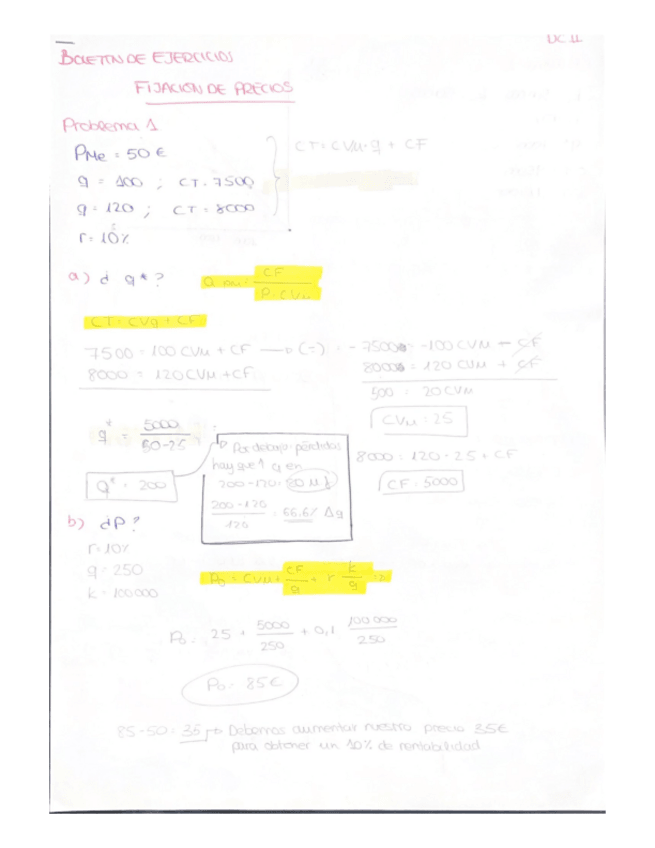 BOLETIN DE EJERCICIOS
FIJACION DE PRECIOS
Problema 1
PMe = 50 €
q = 100 ; CT = 7500
q = 120 ; CT = 8000
r = 10%
CT = CVM·q + CF
a) ¿ q* ?
CF
P - CVM
CT = CVq + CF
7500 = 100 CVM + CF → (-) = - 7500 = -100 CVM - CF
8000 = 120 CVM + CF
8000 = 120 CVM + CF
500 = 20 CVM
CVM = 25
q* = 5000 / 50-25
q* = 200
Por debajo pérdidas
hay que ↑ q en
200-120 =
200-120 / 120 = 66.6% Δq
8000 = 120 · 25 + CF
CF = 5000
b) ¿P?
r = 10%
q = 250
k = 100000
Po = CVM + CF/q + r k/q
Po = 25 + 5000/250 + 0,1 100.000/250
Po = 85€
85-50 = 35 → Debemos aumentar nuestro precio 35€
para obtener un 10% de rentabilidad